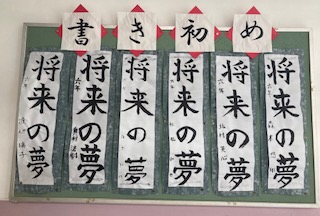 書き初め
将来の夢
将来の夢
将来の夢
将来の夢
将来の夢
将来の夢